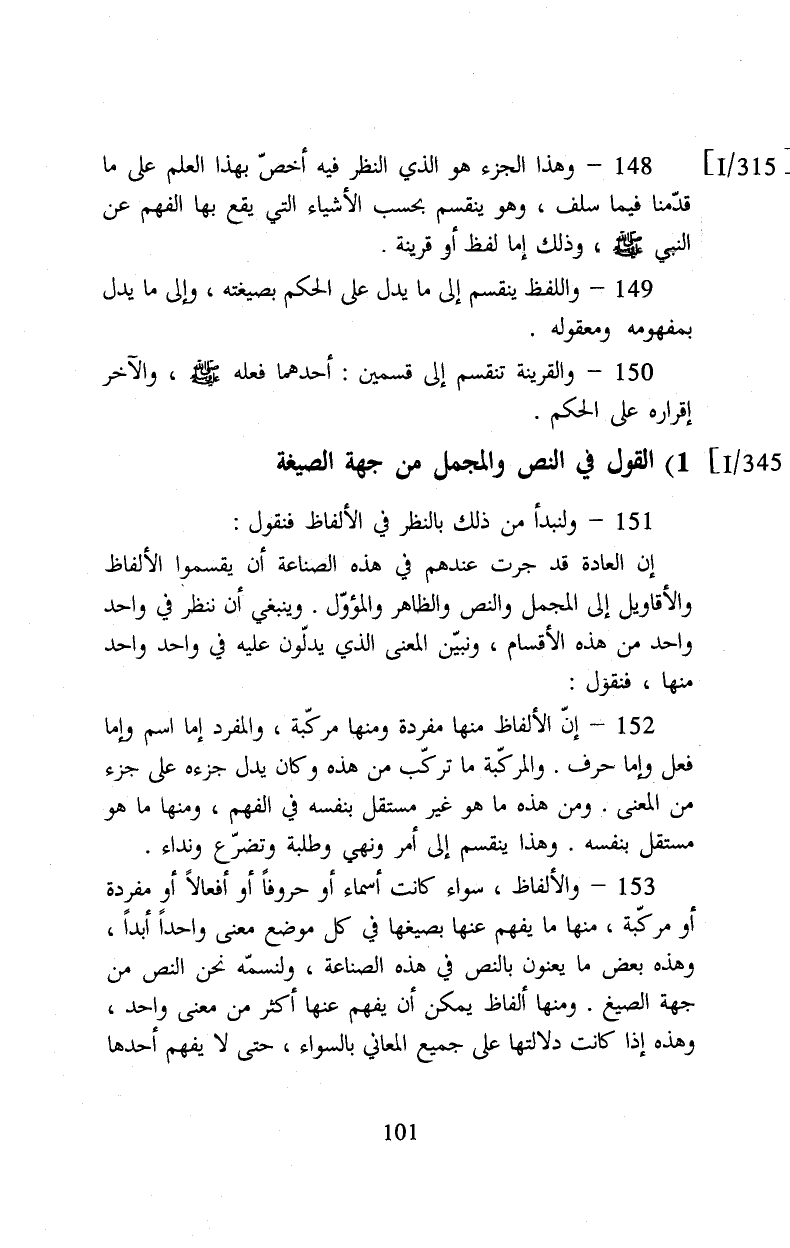 [I/315] 148 – وهذا الجزء هو الذي النظر فيه أخصّ بهذا العلم على ما
قدّمنا فيما سلف ، وهو ينقسم بحسب الأشياء التي يقع بها الفهم عن
النبي ﷺ ، وذلك إما لفظ أو قرينة .
149 – واللفظ ينقسم إلى ما يدل على الحكم بصيغته ، وإلى ما يدل
بمفهومه ومعقوله .
150 – والقرينة تنقسم إلى قسمين : أحدهما فعله ﷺ ، والآخر
إقراره على الحكم .
[I/345] 1) القول في النص والمجمل من جهة الصيغة
151 – ولنبدأ من ذلك بالنظر في الألفاظ فنقول :
إن العادة قد جرت عندهم في هذه الصناعة أن يقسموا الألفاظ
والأقاويل إلى المجمل والنص والظاهر والمؤوّل . وينبغي أن ننظر في واحد
واحد من هذه الأقسام ، ونبيّن المعنى الذي يدلّون عليه في واحد واحد
منها ، فنقول :
152 – إنّ الألفاظ منها مفردة ومنها مركّبة ، والمفرد إما اسم وإما
فعل وإما حرف . والمركّبة ما تركّب من هذه وكان يدل جزءه على جزء
من المعنى . ومن هذه ما هو غير مستقل بنفسه في الفهم ، ومنها ما هو
مستقل بنفسه . وهذا ينقسم إلى أمر ونهي وطلبة وتضرّع ونداء .
153 – والألفاظ ، سواء كانت أسماء أو حروفاً أو أفعالاً أو مفردة
أو مركّبة ، منها ما يفهم عنها بصيغها في كل موضع معنى واحداً أبداً ،
وهذه بعض ما يعنون بالنص في هذه الصناعة ، ولنسمّه نحن النص من
جهة الصيغ . ومنها ألفاظ يمكن أن يفهم عنها أكثر من معنى واحد ،
وهذه إذا كانت دلالتها على جميع المعاني بالسواء ، حتى لا يفهم أحدها
101